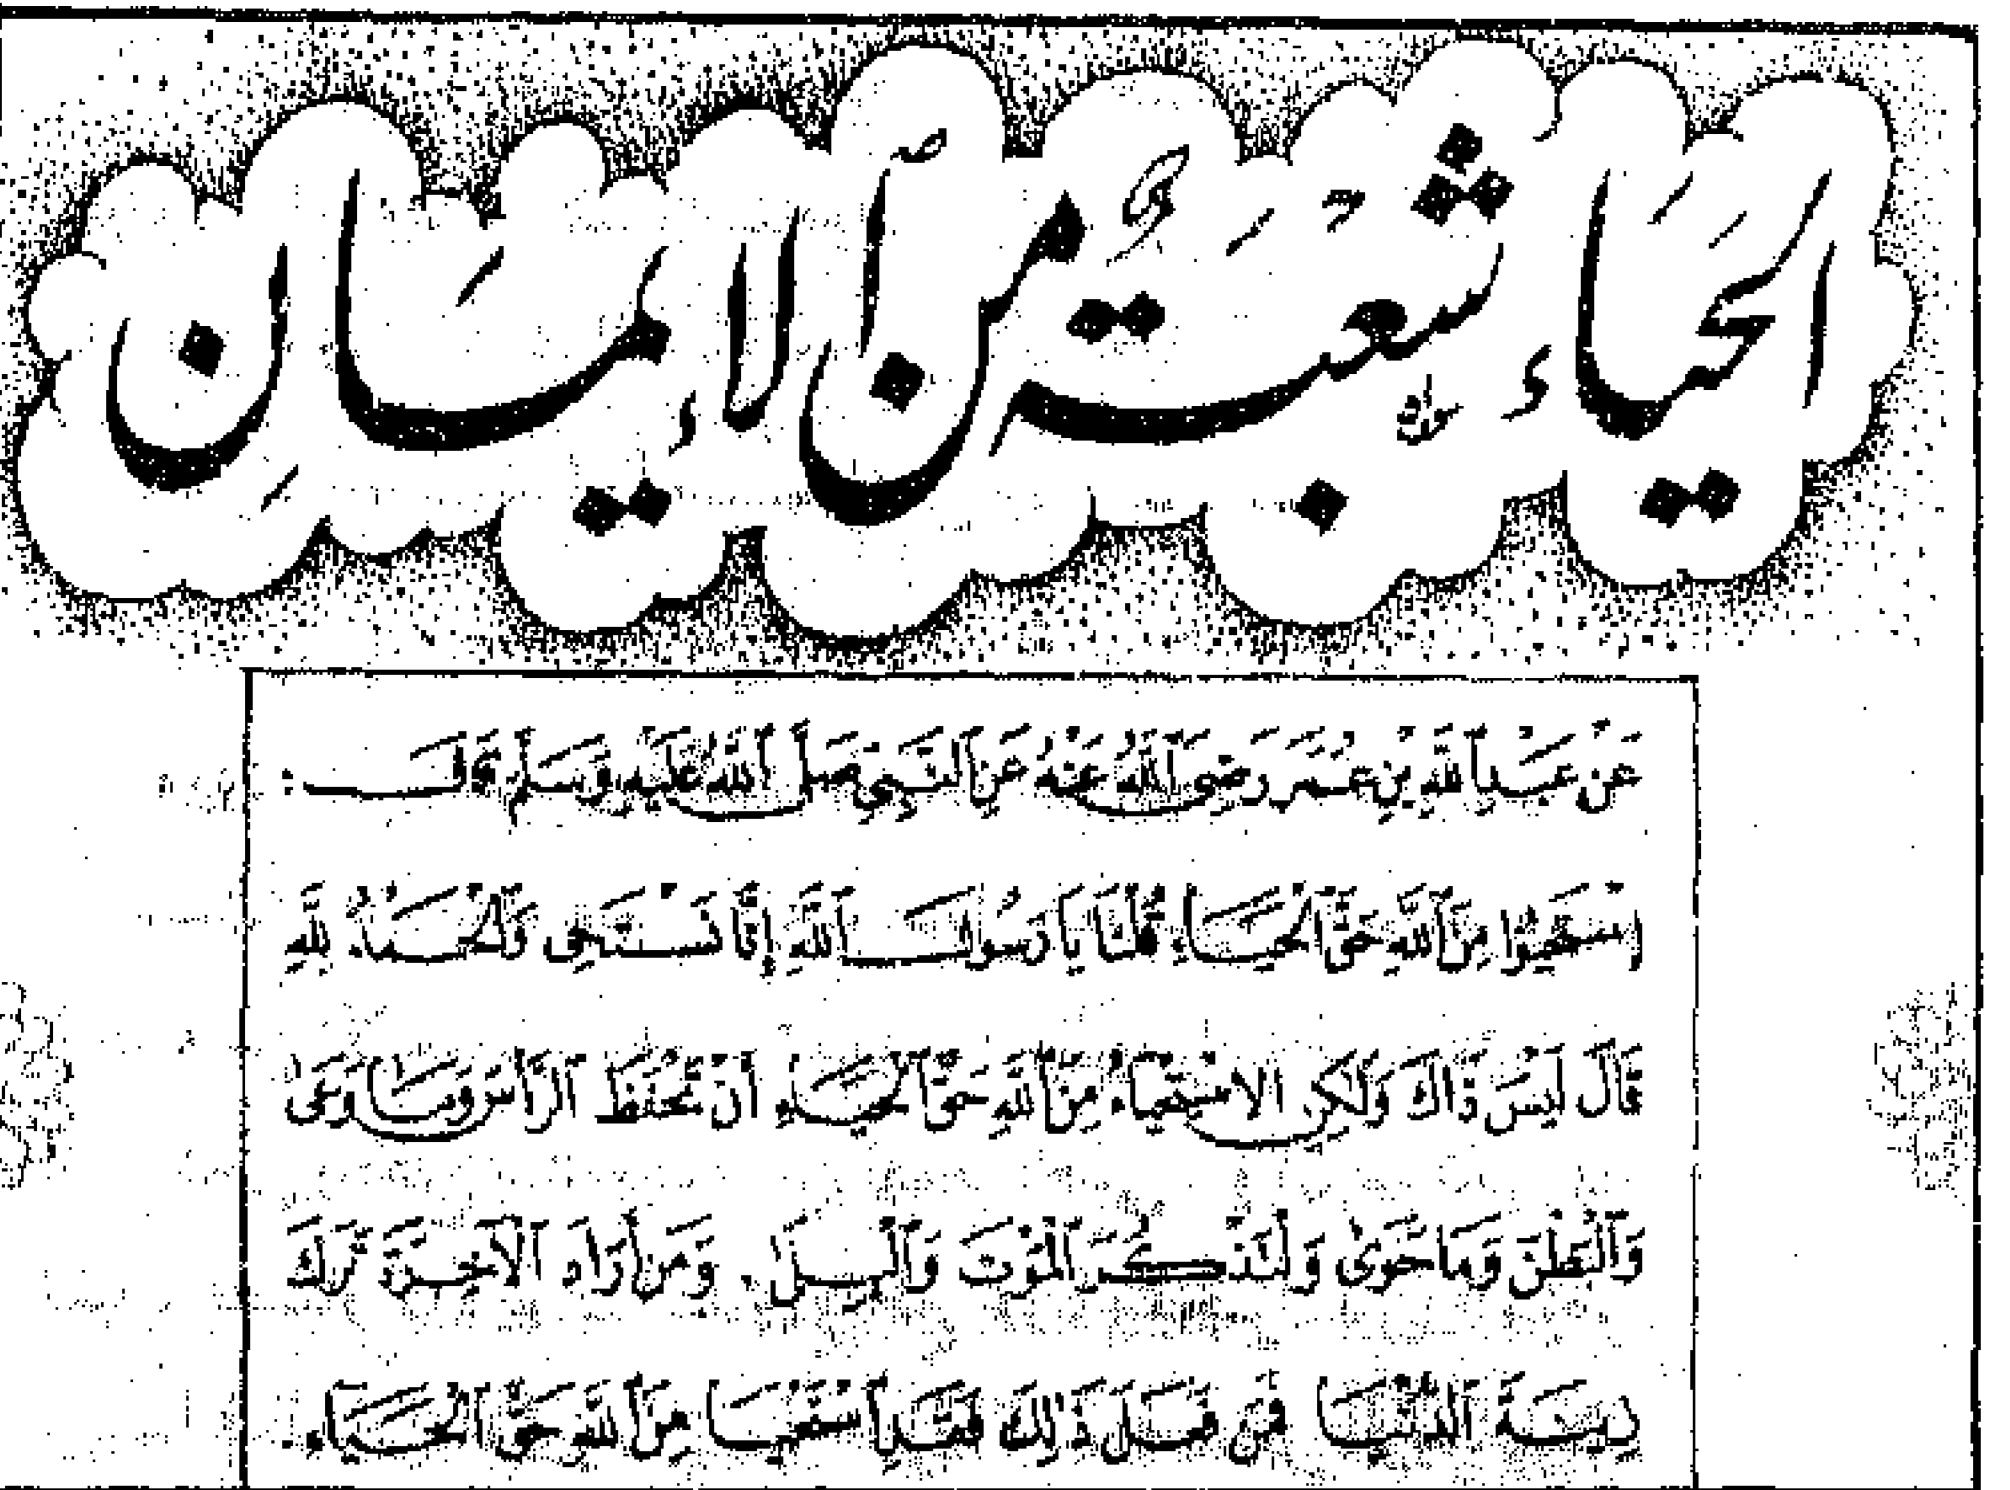 الحَيَاءُ شُعْبَةٌ مِنَ الإِيمَانِ
عَنْ عَبْدِ اللَّهِ بْنِ عُمَرَ رَضِيَ اللَّهُ عَنْهُ عَنِ النَّبِيِّ صَلَّى اللَّهُ عَلَيْهِ وَسَلَّمَ قَالَ :
اِسْتَحْيُوا مِنَ اللَّهِ حَقَّ الْحَيَاءِ، قُلْنَا يَا رَسُولَ اللَّهِ إِنَّا نَسْتَحِي وَالْحَمْدُ لِلَّهِ
قَالَ لَيْسَ ذَاكَ وَلَكِنِ الاسْتِحْيَاءُ مِنَ اللَّهِ حَقَّ الْحَيَاءِ، أَنْ تَحْفَظَ الرَّأْسَ وَمَا وَعَى
وَالْبَطْنَ وَمَا حَوَى وَلْتَذْكُرَ الْمَوْتَ وَالْبِلَى، وَمَنْ أَرَادَ الآخِرَةَ تَرَكَ
زِينَةَ الدُّنْيَا فَمَنْ فَعَلَ ذَلِكَ فَقَدِ اسْتَحْيَا مِنَ اللَّهِ حَقَّ الْحَيَاءِ.